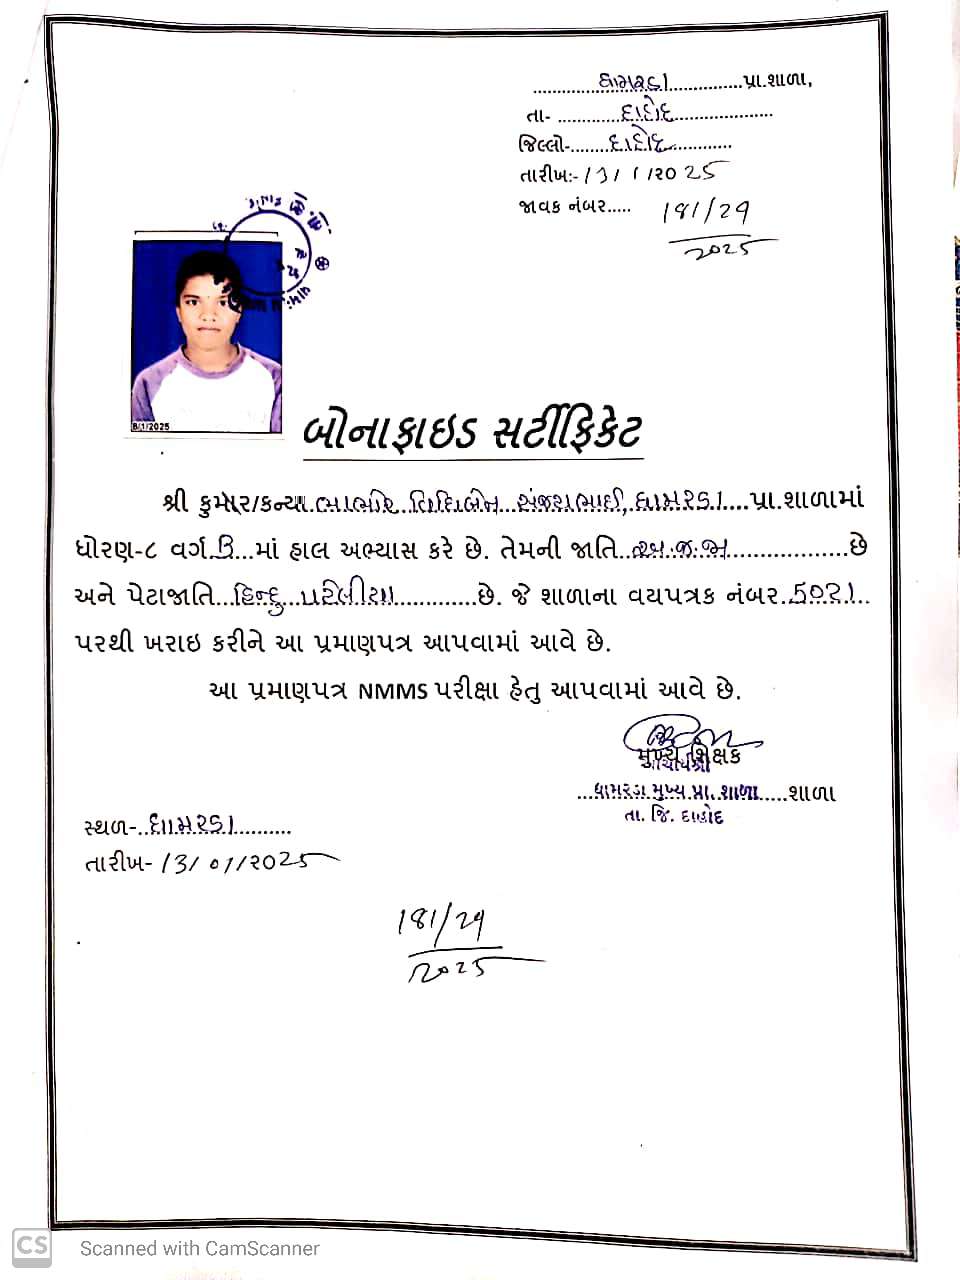 ધામરડા પ્રા.શાળા,
તા- દાહોદ
જિલ્લો- દાહોદ
તારીખ:- 13/1/2025
જાવક નંબર..... 181/29
2025
8/1/2025
બોનાફાઇડ સર્ટીફિકેટ
શ્રી કુમાર/કન્યા ભાભોર નિધિબેન સંજયભાઈ, ધામરડા પ્રા.શાળામાં
ધોરણ-૮ વર્ગ B માં હાલ અભ્યાસ કરે છે. તેમની જાતિ અ.જ.જ છે
અને પેટાજાતિ હિન્દુ પટેલીયા છે. જે શાળાના વયપત્રક નંબર 5021
પરથી ખરાઇ કરીને આ પ્રમાણપત્ર આપવામાં આવે છે.
આ પ્રમાણપત્ર NMMS પરીક્ષા હેતુ આપવામાં આવે છે.
મુખ્ય શિક્ષક
આચાર્યશ્રી
ધામરડા મુખ્ય પ્રા. શાળા શાળા
તા. જિ. દાહોદ
સ્થળ- ધામરડા
તારીખ- 13/01/2025
181/29
2025
CS Scanned with CamScanner